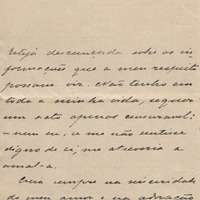 Esteja descançada sobre as in-
formações que a meu respeito
possam vir. Não tenho em
toda a minha vida, sequer
um acto apenas censuravel:
- nem eu, se me não sentisse
digno de si, me atreveria a
amal-a.
Creia sempre na sinceridade
do meu amor e na adoração